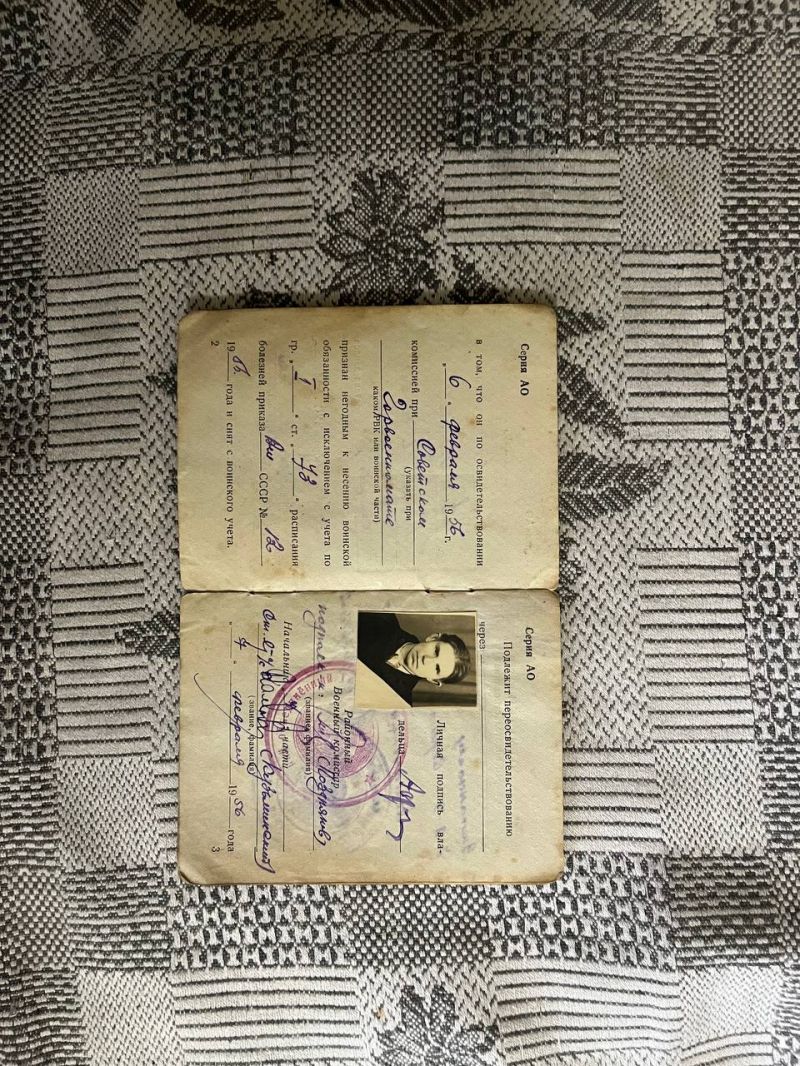 Серия АО
в том, что он по освидетельствовании
„ 6 “ февраля 1956 г.
комиссией при Советском
(указать при
Горвоенкомате
каком РВК или воинской части)
признан негодным к несению воинской
обязанности с исключением с учета по
гр. „ I “ ст. „ 43 “ расписания
болезней приказа ВМ СССР № 12
1956 года и снят с воинского учета.
2
Серия АО
Подлежит переосвидетельствованию
через
Личная подпись вла-
дельца
Районный
Военный комиссар
(звание, фамилия)
Начальник части
(звание, фамилия)
„ 7 “ февраля 1956 года
3